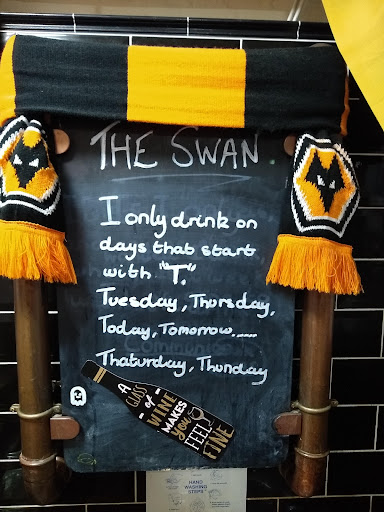 THE SWAN
I only drink on
days that start
with "T".
Tuesday, Thursday,
Today, Tomorrow.....
Thaturday, Thunday
A
GLASS
- of -
WINE
MAKES
you
FEEL
FINE
HAND
WASHING
STEPS